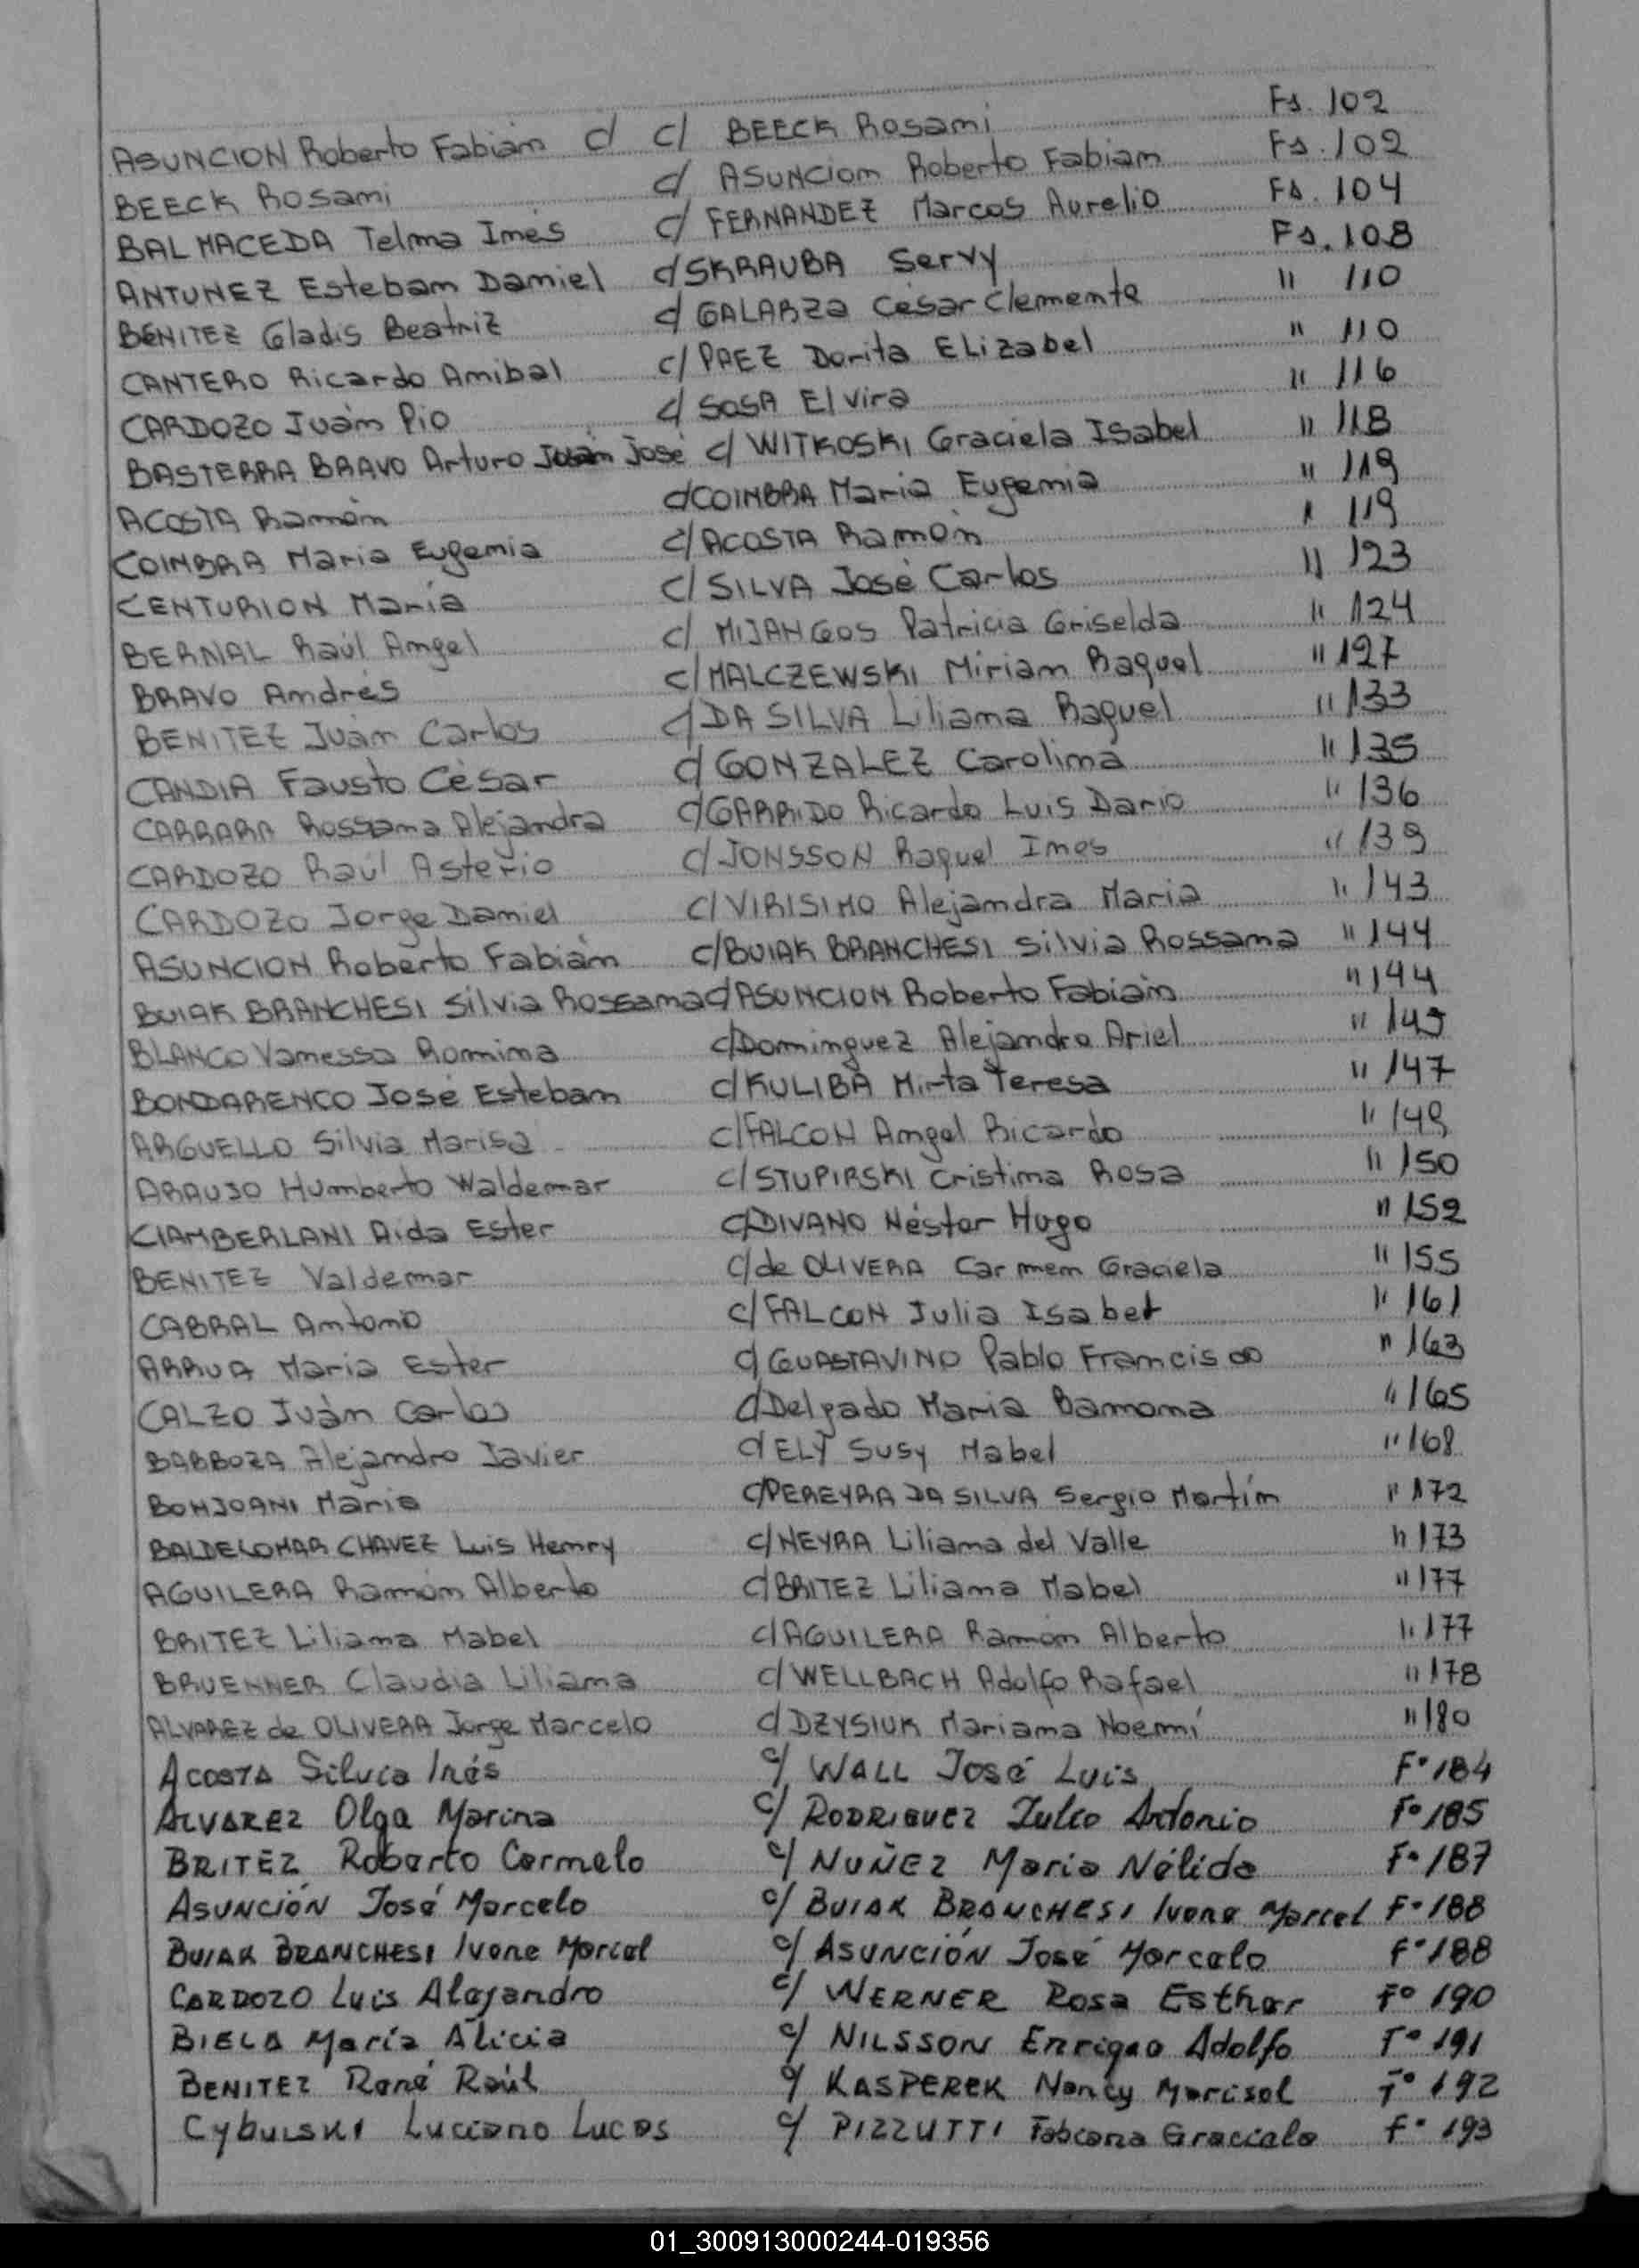 ASUNCION Roberto Fabián c/ c/ BEECK Rosami Fs. 102
BEECK Rosami c/ ASUNCiom Roberto Fabiam Fs. 102
BALMACEDA Telma Imés c/ FERNANDEZ Marcos Aurelio Fs. 104
ANTUNEZ Estebam Damiel c/ SKRAUBA Servy Fs. 108
BENITEZ Gladis Beatriz c/ GALARZa César Clemente " 110
CANTERO Ricardo Amibal c/ PAEZ Dorita ELizabel " 110
CARDOZO Juám Pio c/ SOSA Elvira " 116
BASTERRA BRAVO Arturo Juán José c/ WITKOSKI Graciela Isabel " 118
ACOSTA Ramón c/ COIMBRA Maria Eugemia " 119
COIMBRA Maria Eugemia c/ ACOSTA Ramón " 119
CENTURION María c/ SILVA José Carlos " 123
BERNAL Raúl Amgel c/ MIJANGOS Patricia Griselda " 124
BRAVO Amdrés c/ MALCZEWSKI Miriam Raquel " 127
BENITEZ Juám Carlos c/ DA SILVA Liliama Raquel " 133
CANDIA Fausto César c/ GONZALEZ Carolima " 135
CARRARA Rossama Alejandra c/ GARRIDO Ricardo Luis Dario " 136
CARDOZO Raúl Asterio c/ JONSSON Raquel Imes " 139
CARDOZO Jorge Damiel c/ VIRISIMO Alejamdra Maria " 143
ASUNCION Roberto Fabiám c/ BUIAK BRANCHESI Silvia Rossama " 144
BUIAK BRANCHESI Silvia Rossama c/ ASUNCION Roberto Fabiám " 144
BLANCO Vamessa Romima c/ Dominguez Alejandro Ariel " 145
BONDARENCO José Estebam c/ KULIBA Mirta Teresa " 147
ARGUELLO Silvia Marisa c/ FALCON Amgel Ricardo " 149
ARAUJO Humberto Waldemar c/ STUPIRSKI Cristima Rosa " 150
CIAMBERLANI Aida Ester c/ DIVANO Néstor Hugo " 152
BENITEZ Valdemar c/ de OLIVERA Carmem Graciela " 155
CABRAL Amtonio c/ FALCON Julia Isabel " 161
ARRUA Maria Ester c/ GUASTAVINO Pablo Framcisco " 163
CALZO Juán Carlos c/ Delgado Maria Ramoma " 165
BARBOZA Alejamdro Javier c/ ELY Susy Mabel " 168
BONJOANI Mario c/ PEREYRA DA SILVA Sergio Martím " 172
BALDELOMAR CHAVEZ Luis Hemry c/ NEYRA Liliama del Valle " 173
AGUILERA Ramóm Alberto c/ BRITEZ Liliama Mabel " 177
BRITEZ Liliama Mabel c/ AGUILERA Ramóm Alberto " 177
BRUENNER Claudia Liliama c/ WELLBACH Adolfo Rafael " 178
ALVAREZ de OLIVERA Jorge Marcelo c/ DZYSIUK Mariama Noemí " 180
ACOSTA Silvia Inés c/ WALL José Luis F° 184
ALVAREZ Olga Marina c/ RODRIGUEZ Julio Antonio F° 185
BRITEZ Roberto Carmelo c/ NUÑEZ Maria Nélida F° 187
ASUNCIÓN José Marcelo c/ BUIAK BRANCHESI Ivone Marcel F° 188
BUIAK BRANCHESI Ivone Marcel c/ ASUNCIÓN José Marcelo F° 188
CARDOZO Luis Alejandro c/ WERNER Rosa Esther F° 190
BIELA María Alicia c/ NILSSON Enrique Adolfo F° 191
BENITEZ René Raúl c/ KASPEREK Nancy Marisol F° 192
CYBULSKI Luciano Lucas c/ PIZZUTTI Fabiana Graciela F° 193
01_300913000244-019356